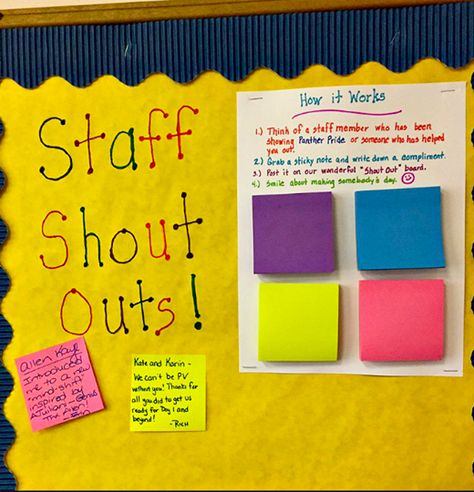 Staff
Shout
Outs!
How it Works
1.) Think of a staff member who has been
showing Panther Pride or someone who has helped
you out.
2.) Grab a sticky note and write down a compliment.
3.) Post it on our wonderful "Shout Out" board.
4.) Smile about making somebody's day.
Introduced
me to a new
"mind-shift"
inspired by
Kate and Karin -
We can't be PV
without you! Thanks for
all you did to get us
ready for Day 1 and
beyond!
- Rich